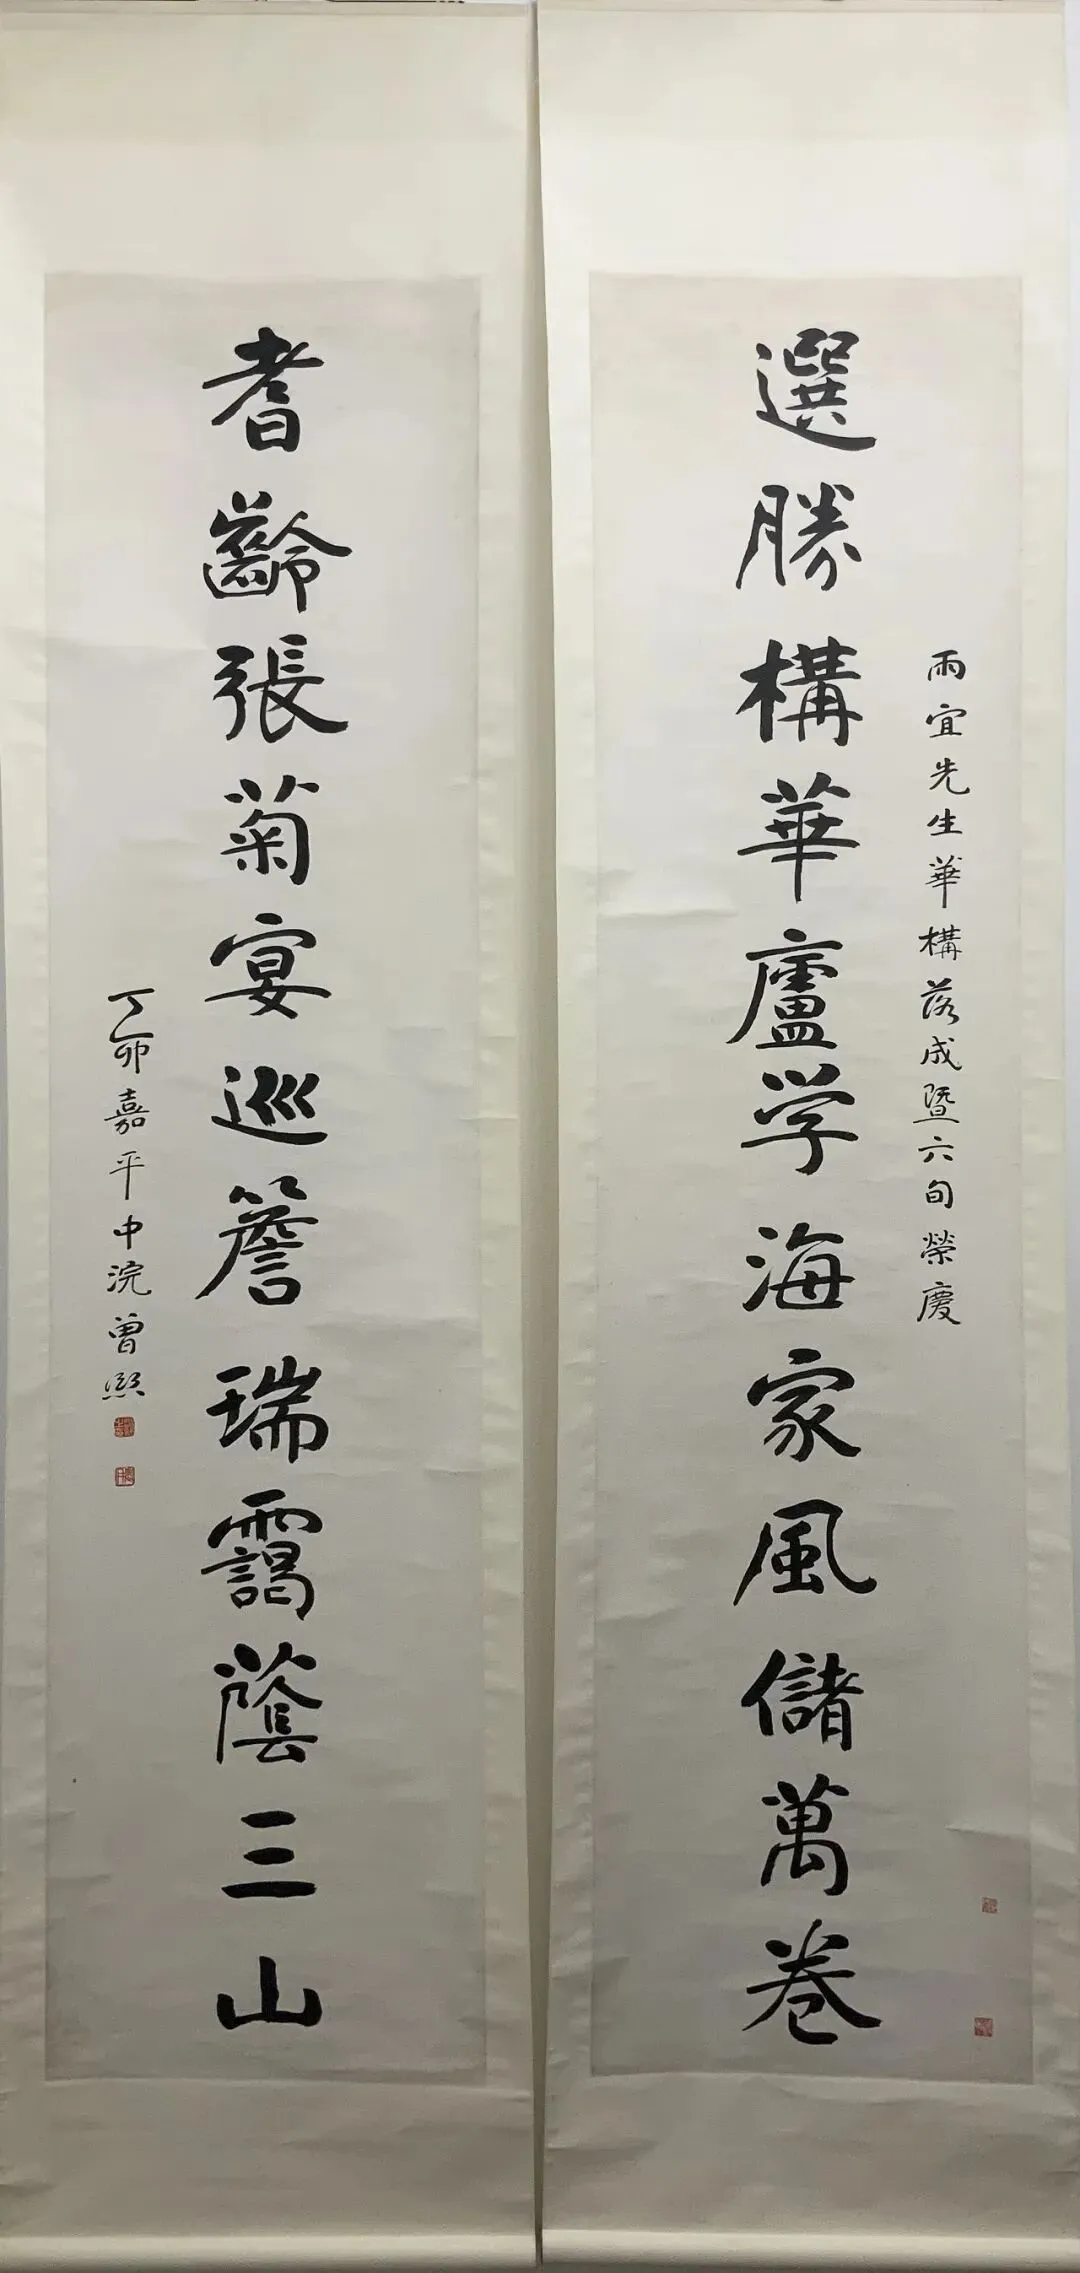 選勝構華廬学海家風儲萬卷
雨宜先生華構落成暨六旬榮慶
耆齡張菊宴巡簷瑞靄蔭三山
丁卯嘉平中浣曾熙